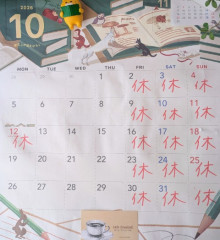 2026
10
MON TUE WED THU FRI SAT SUN
1 2 3 4
休 休 休
5 6 7 8 9 10 11
休 休 休
12 13 14 15 16 17 18
休 休 休 休
19 20 21 22 23 24 25
休 休 休
26 27 28 29 30 31
休 休